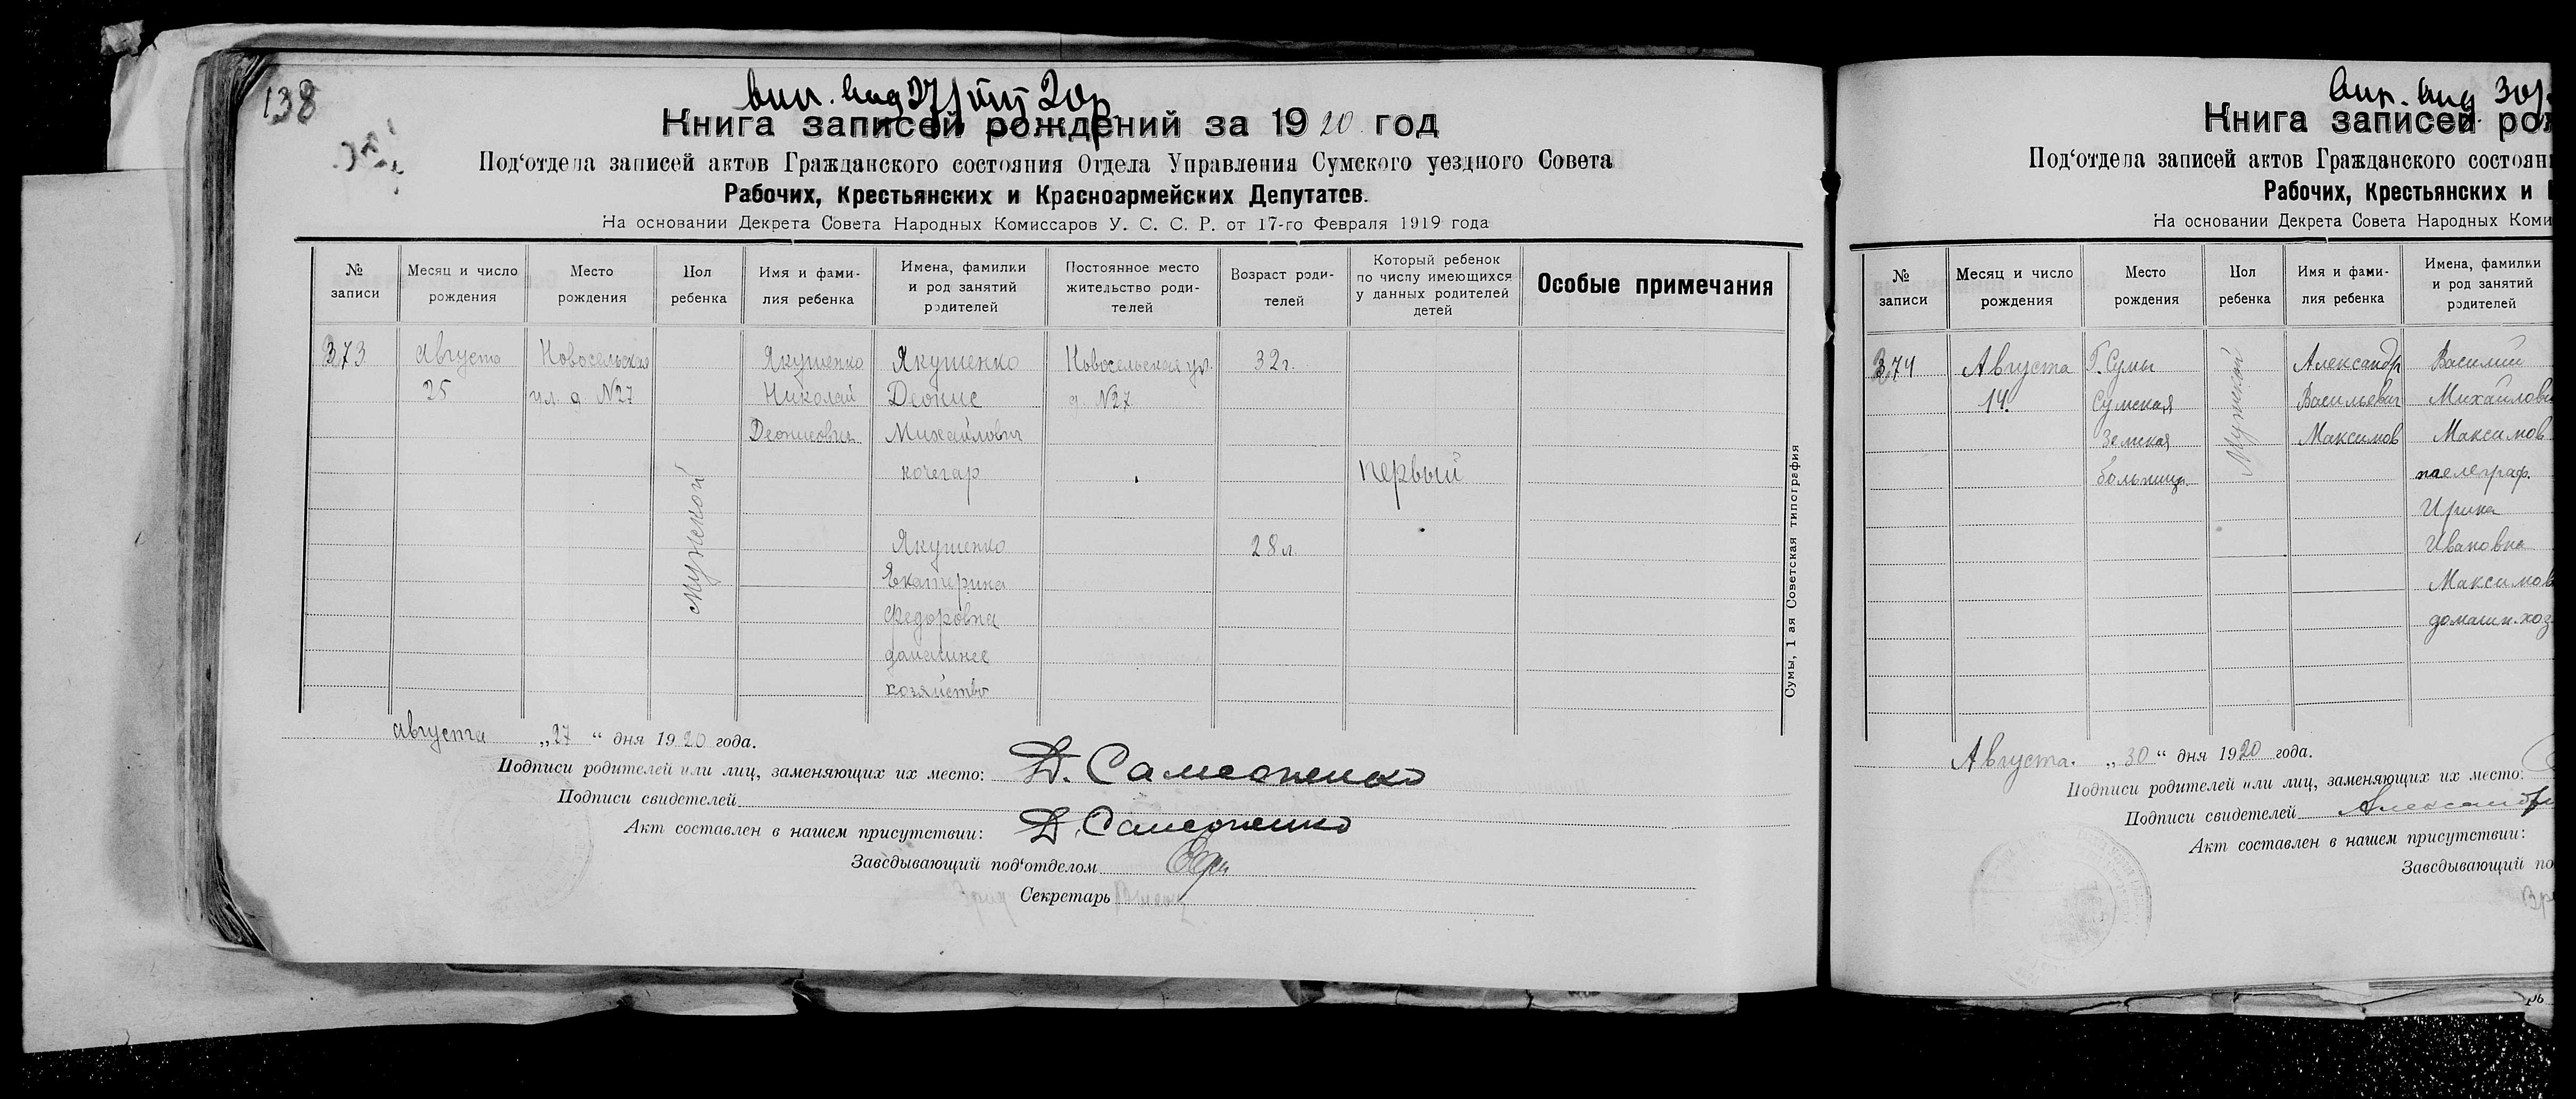 138
вип. вид 27/VIII 20р
Книга записей рождений за 1920 год
Под‘отдела записей актов Гражданского состояния Отдела Управления Сумского уездного Совета
Рабочих, Крестьянских и Красноармейских Депутатов.
На основании Декрета Совета Народных Комиссаров У. С. С. Р. от 17-го Февраля 1919 года
№ записи
Месяц и число рождения
Место рождения
Пол ребенка
Имя и фами-
лия ребенка
Имена, фамилии
и род занятий
родителей
Постоянное место
жительство роди-
телей
Возраст роди-
телей
Который ребенок
по числу имеющихся
у данных родителей
детей
Особые примечания
373
Августа
25
Новосельская
ул. д №27
Мужской
Якушенко
Николай
Деонисович
Якушенко
Деонис
Михайлович
кочегар
Якушенко
Екатерина
Федоровна
домашнее
хозяйство
Новосельская ул.
д. №27
32г.
28л.
первый
Сумы, 1 ая Советская типография
августа „27“ дня 1920 года.
Подписи родителей или лиц, заменяющих их место: Д. Самсоненко
Подписи свидетелей
Акт составлен в нашем присутствии: Д. Самсоненко
Заведывающий под‘отделом
Секретарь
Вип. вид 30/
Книга записей рож
Под‘отдела записей актов Гражданского состоян
Рабочих, Крестьянских и
На основании Декрета Совета Народных Коми
№ записи
Месяц и число рождения
Место рождения
Пол ребенка
Имя и фами-
лия ребенка
Имена, фамилии
и род занятий
родителей
374
Августа
14.
Г. Сумы
Сумская
Земская
больница
Мужской
Александр
Васильевич
Максимов
Василий
Михайлови
Максимов
телеграф.
Ирина
Ивановна
Максимов
домашн. хоз
Августа. „30“ дня 1920 года.
Подписи родителей или лиц, заменяющих их место:
Подписи свидетелей Александр
Акт составлен в нашем присутствии:
Заведывающий по